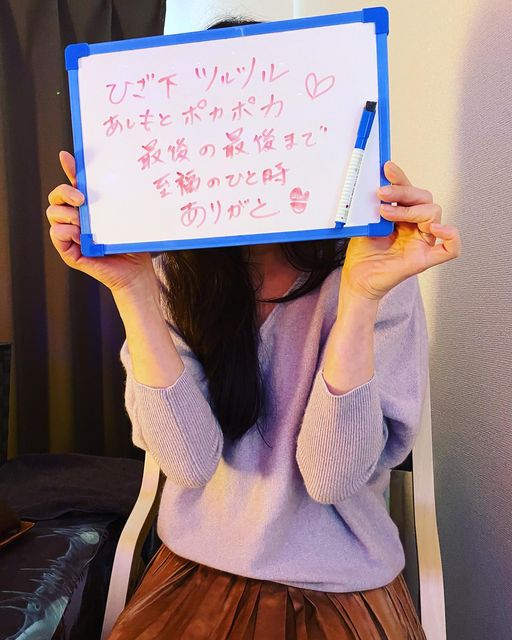 ひざ下 ツルツル
あしもと ポカポカ♡
最後の最後まで
至福のひと時
ありがと